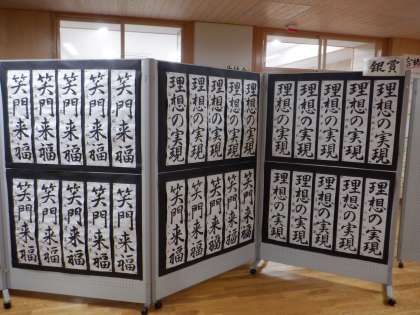 笑門来福
笑門来福
笑門来福
笑門来福
笑門来福
笑門来福
笑門来福
笑門来福
笑門来福
笑門来福
理想の実現
理想の実現
理想の実現
理想の実現
理想の実現
笑門来福
笑門来福
笑門来福
笑門来福
笑門来福
理想の実現
理想の実現
理想の実現
理想の実現
理想の実現
理想の実現
理想の実現
理想の実現
理想の実現
理想の実現
銀賞